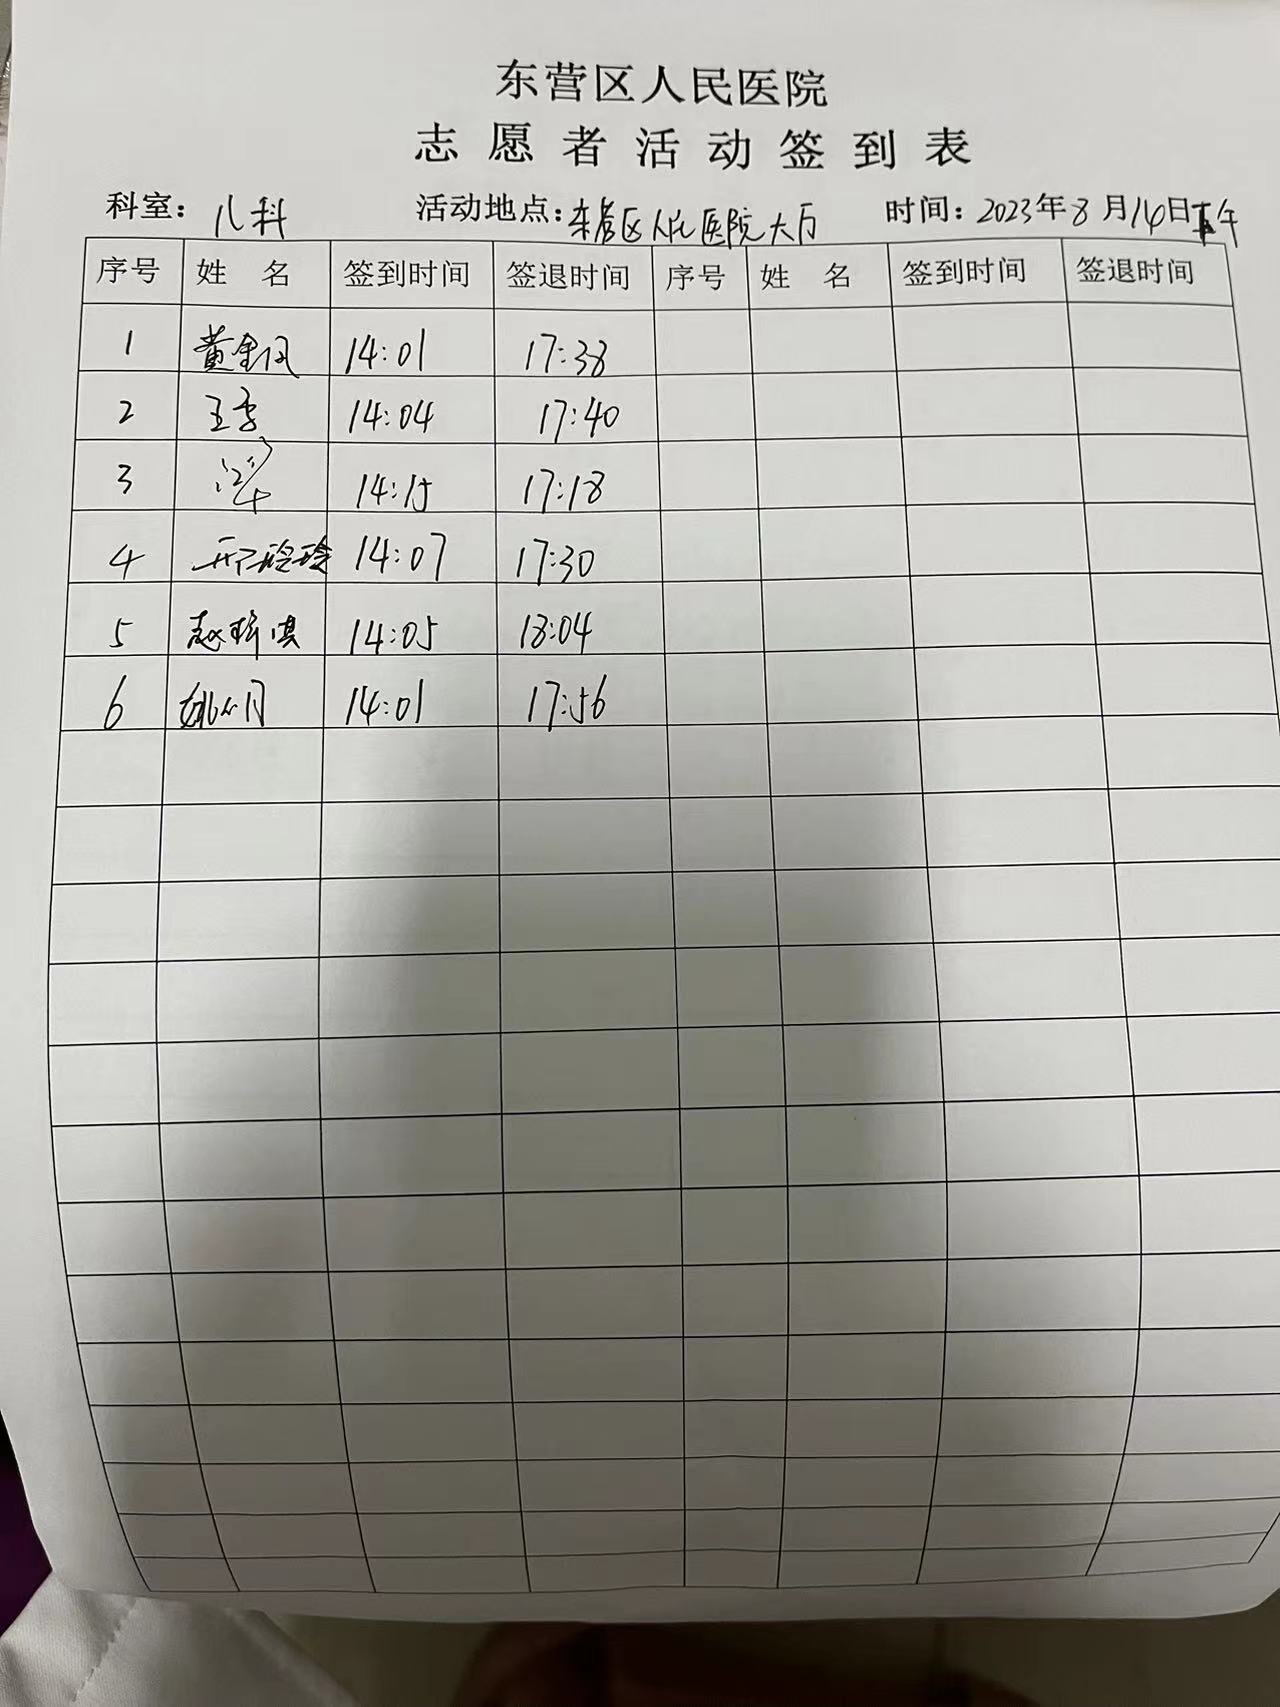 东营区人民医院
志愿者活动签到表
科室：儿科 活动地点：东营区人民医院大厅 时间：2023年8月14日下午
序号 姓名 签到时间 签退时间 序号 姓名 签到时间 签退时间
1 黄金凤 14:01 17:38
2 王 14:04 17:40
3 14:15 17:18
4 邢玲玲 14:07 17:30
5 赵 14:05 18:04
6 姚 月 14:01 17:56